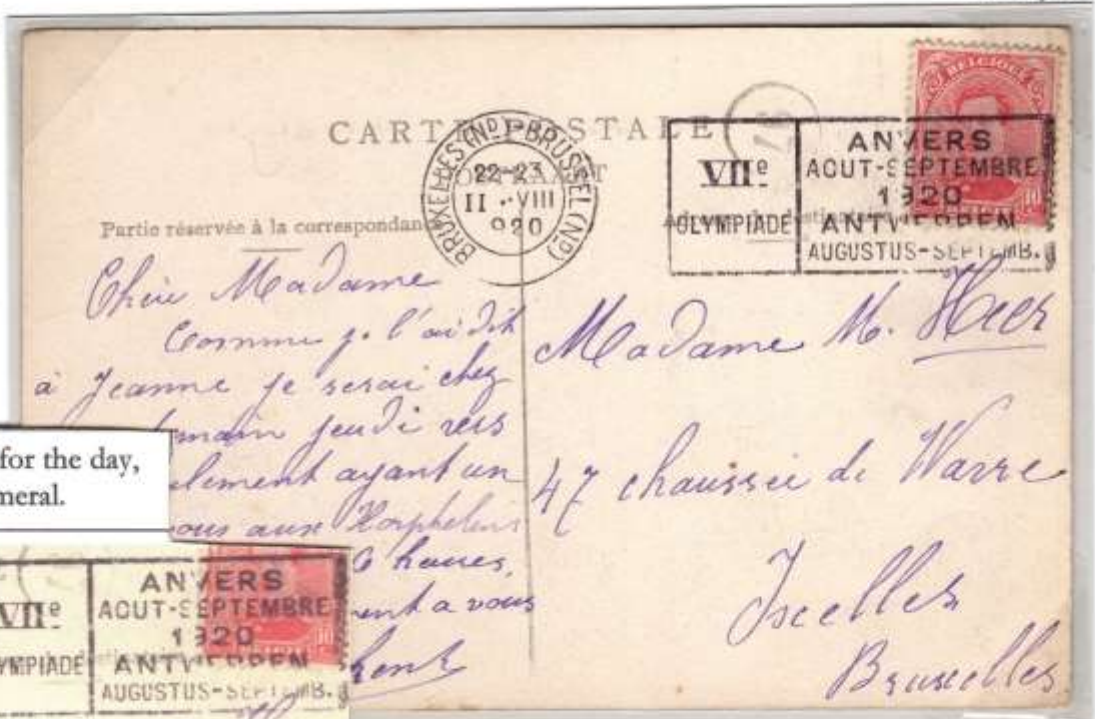 CARTE POSTALE
BRUXELLES (ND) - BRUSSEL (ND)
22-23
II ·· VIII
920
VIIe
OLYMPIADE
ANVERS
AOUT-SEPTEMBRE
1920
ANTWERPEN
AUGUSTUS-SEPTEMB.
BELGIQUE
10
Partie réservée à la correspondan
Chère Madame
Comme je l'ai dit
à Jeanne je serai chez
main jeudi vers
lement ayant un
ous aux
6 heures,
ent a vous
Madame M.
47 chaussée de Wavre
Ixelles
Bruxelles
for the day,
meral.
VIIe
YMPIADE
ANVERS
AOUT-SEPTEMBRE
1920
ANTWERPEN
AUGUSTUS-SEPTEMB.
10